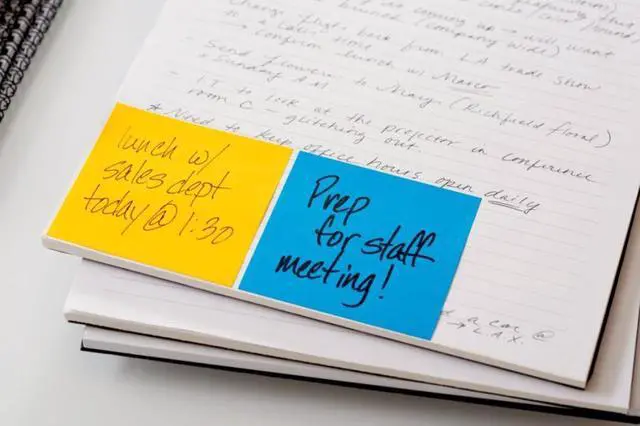 coming up → will want
(company wide)
Change flight back from LA trade show
to a later time
- confirm lunch w/ Marco
- Send flowers to Marge (Richfield floral)
* Sunday AM
- IT to look at the projector in conference
room C - glitching out
* Need to keep office hours open daily
lunch w/
sales dept
today @ 1:30
Prep
for staff
meeting!
a car @
→ L.A.X.